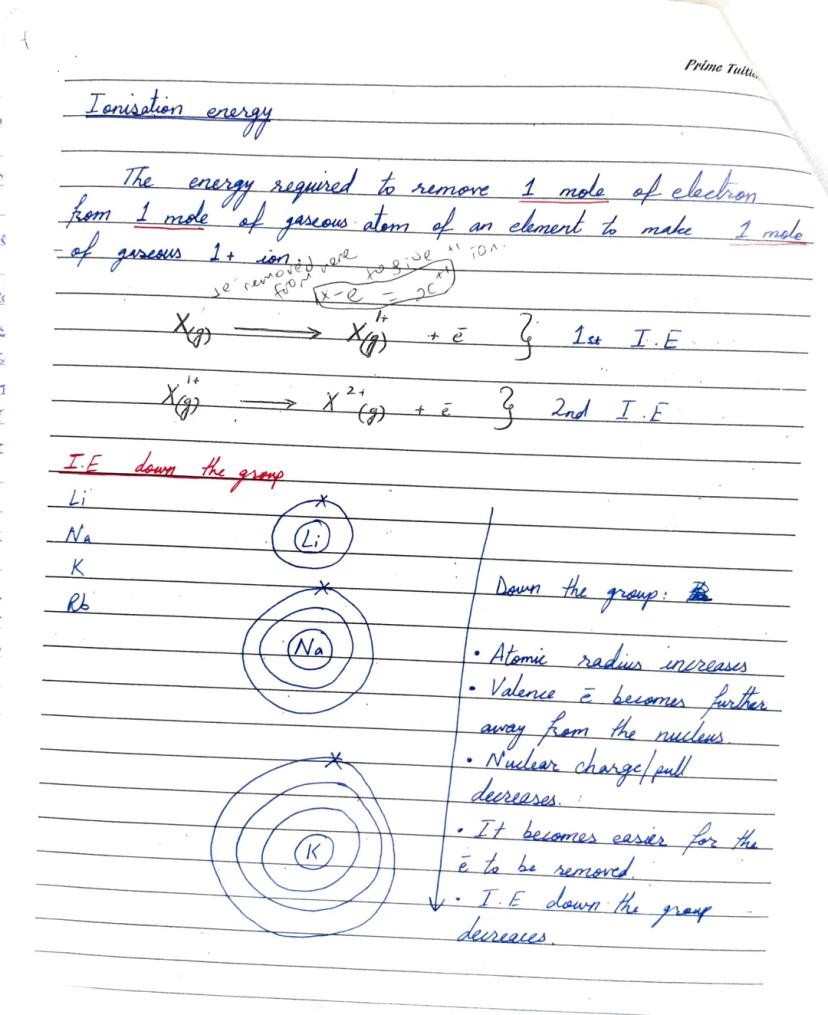 Prime Tuitio
Ionisation energy
The energy required to remove 1 mole of electron
from 1 mole of gaseous atom of an element to make 1 mole
of gaseous 1+ ion.
1e removed from here to give +1 ion.
x-e = x+1
X(g) → X(g)1+ + ē } 1st I.E
X(g)1+ → X2+(g) + ē } 2nd I.E
I.E down the group
Li
Na
K
Rb
Li
Na
K
Down the group:
• Atomic radius increases
• Valence ē becomes further
away from the nucleus.
• Nuclear charge/pull
decreases.
• It becomes easier for the
ē to be removed.
• I.E down the group
decreases.